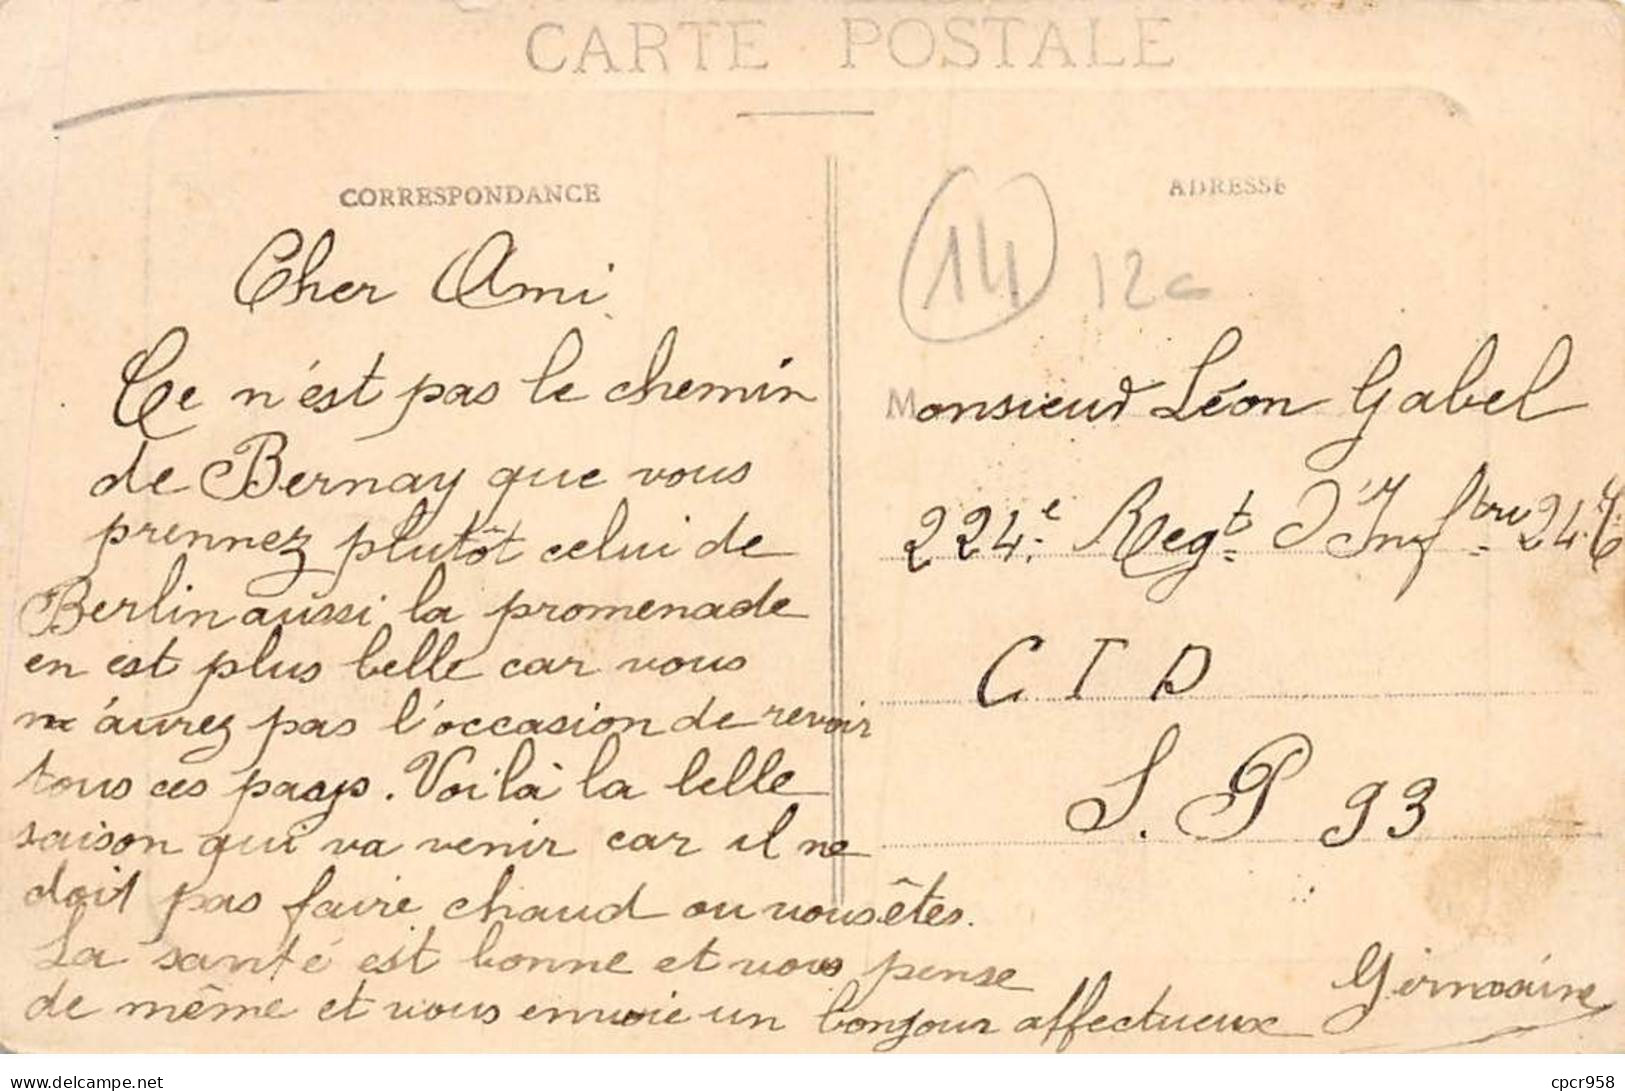 CARTE POSTALE
CORRESPONDANCE
Cher Ami
Ce n'est pas le chemin
de Bernay que vous
prennez plutôt celui de
Berlin aussi la promenade
en est plus belle car vous
n'aurez pas l'occasion de revoir
tous ces pays. Voilà la belle
saison qui va venir car il ne
doit pas faire chaud ou vous êtes.
La santé est bonne et vous pense
de même et vous envoie un bonjour affectueux
Germaine
ADRESSE
14 12c
Monsieur Léon Gabel
224.e Regt. d'Inftrie 24.C
C I D
S. P 93
www.delcampe.net
cpcr958